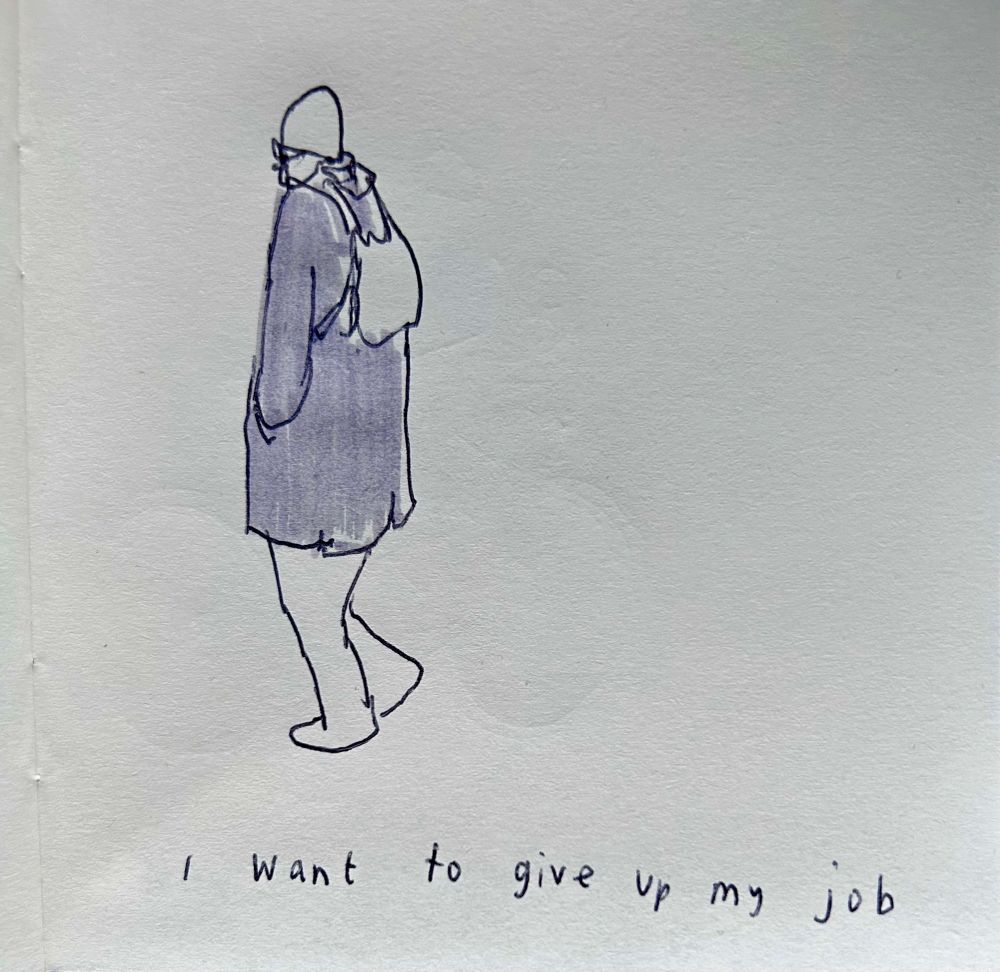 I want to give up my job